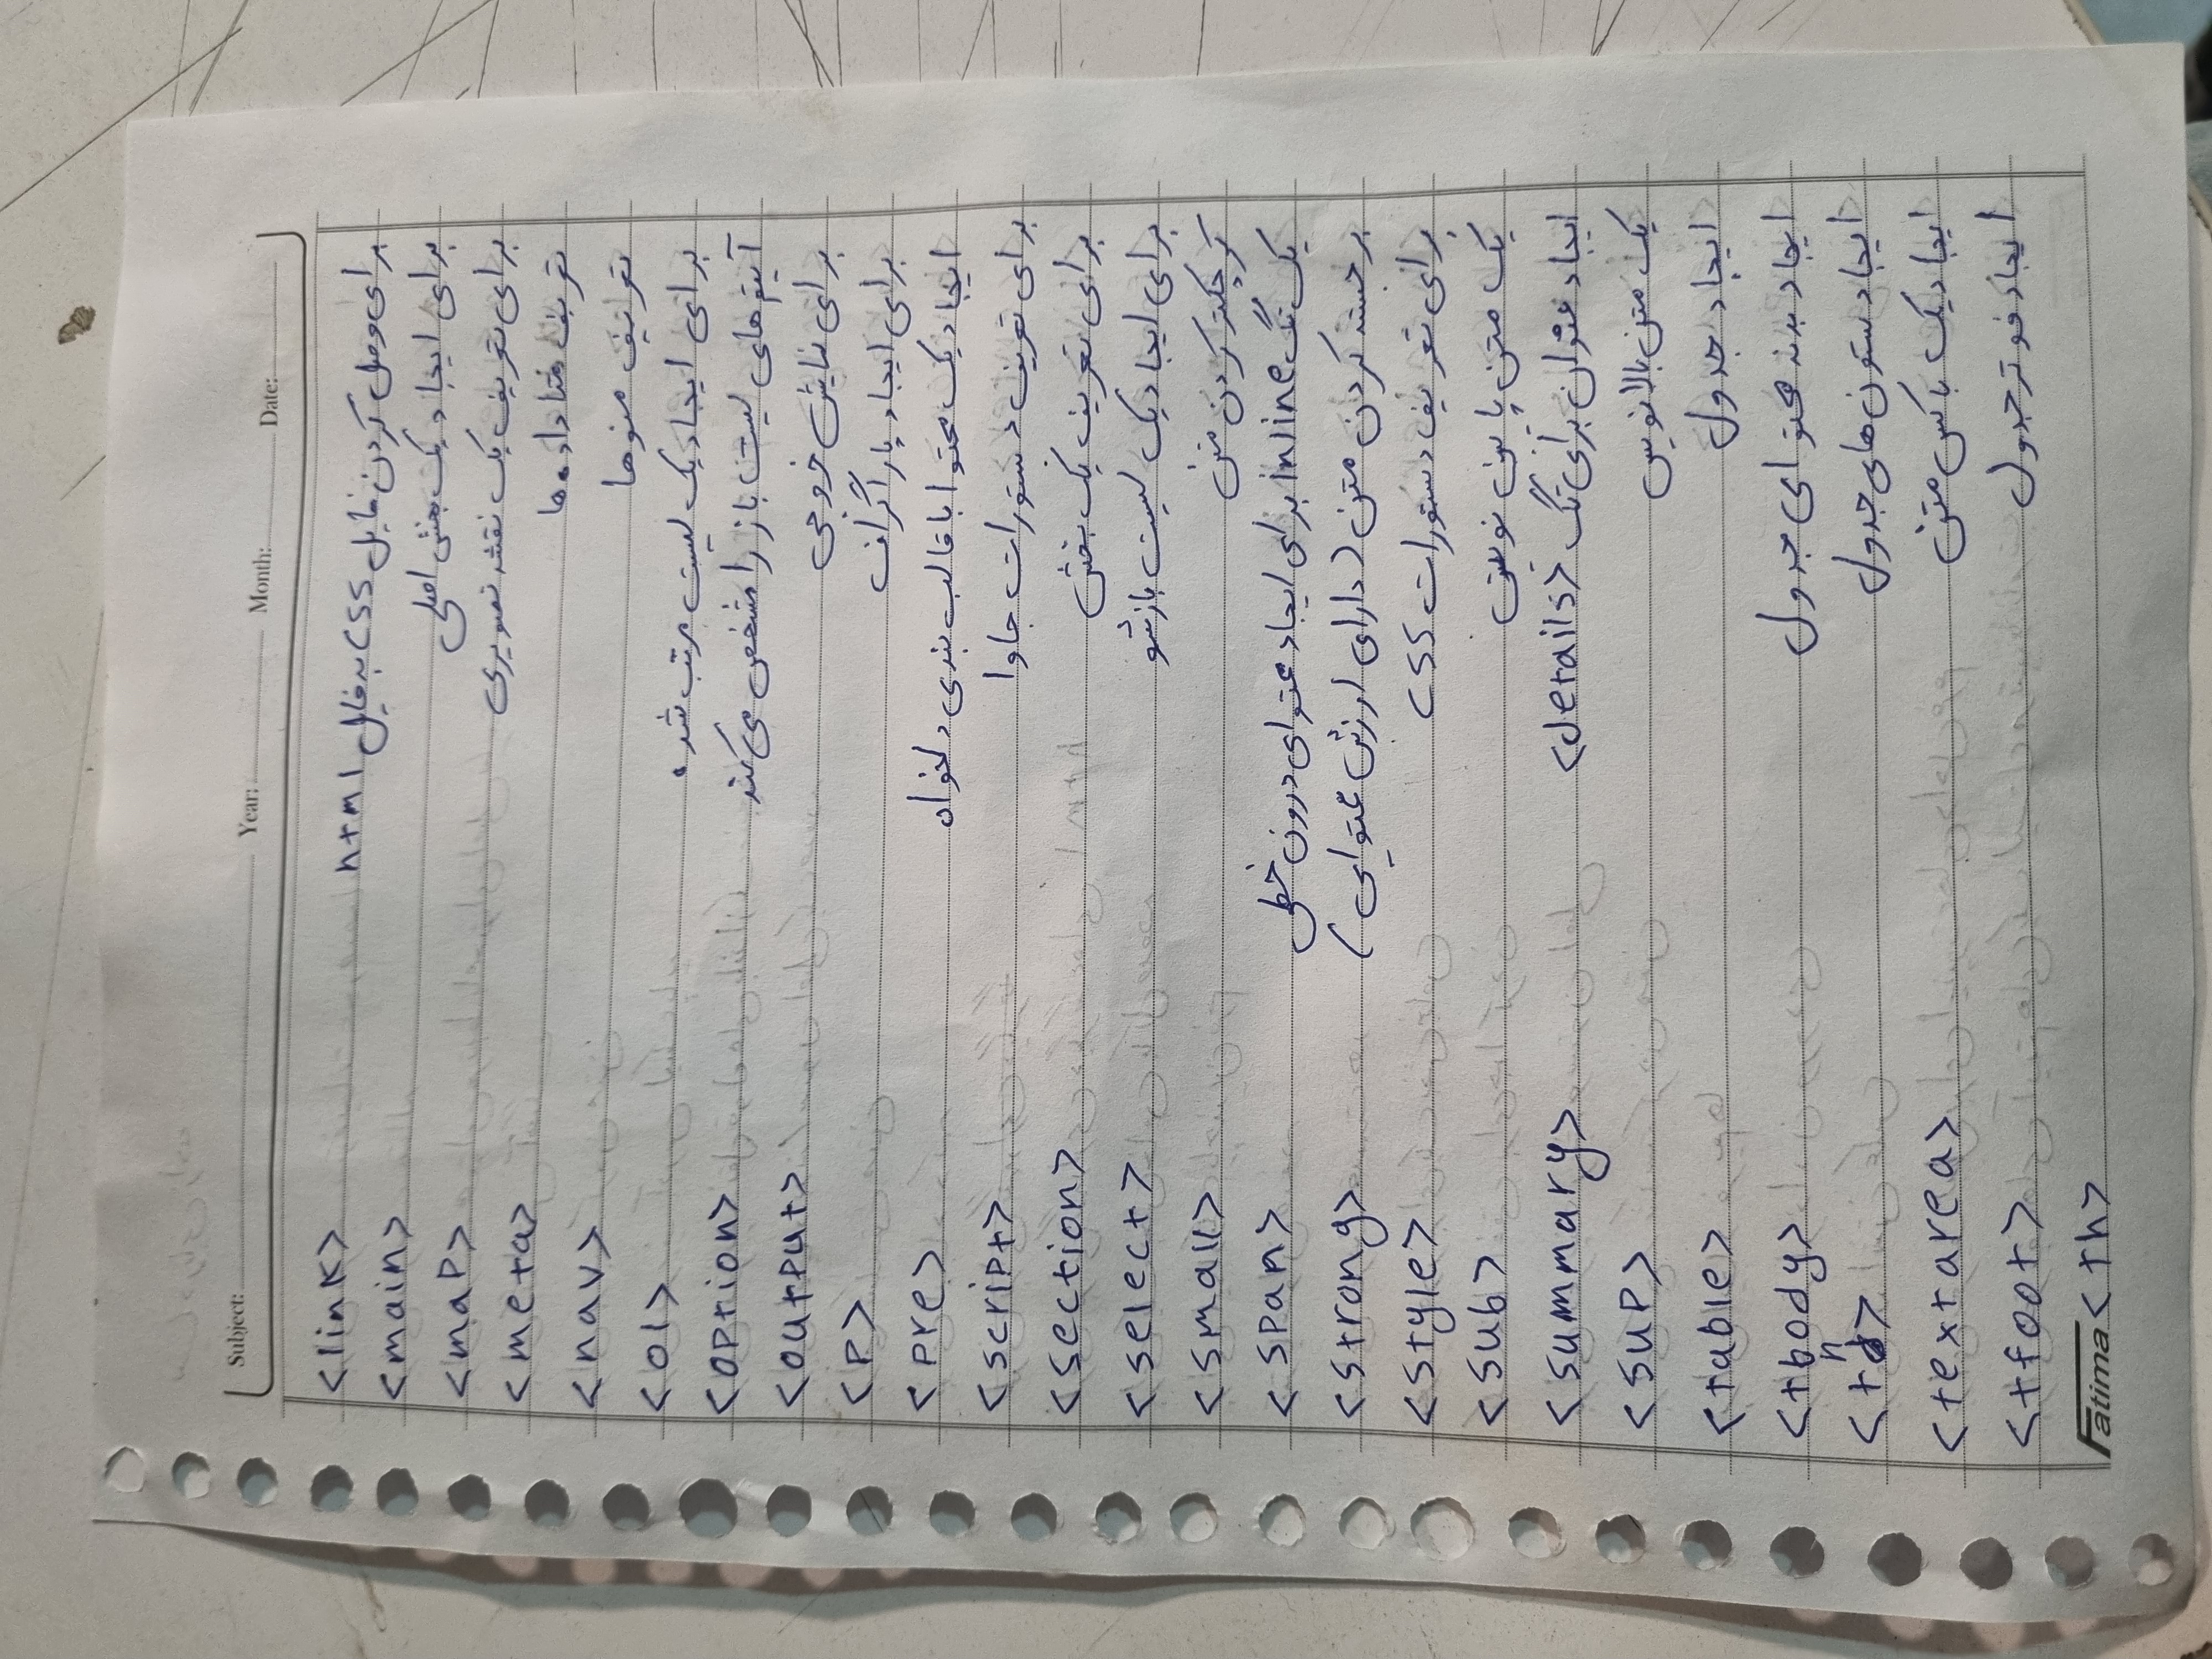 Subject: Year: Month: Date:
<link> برای وصل کردن فایل css به فایل html
<main> برای ایجاد یک بخش اصلی
<map> برای تعریف یک نقشه تصویری
<meta> تعریف متا داده ها
<nav> تعریف منوها
<ol> برای ایجاد یک لیست مرتب شده
<option> آیتم های لیست باز را مشخص می کند
<output> برای نمایش خروجی
<p> برای ایجاد پاراگراف
<pre> ایجاد یک محتوا با قالب بندی دلخواه
<script> برای تعریف دستورات جاوا
<section> برای تعریف یک بخش
<select> برای ایجاد یک لیست بازشو
<small> کوچکتر کردن متن
<span> یک تگ inline برای ایجاد محتوای درون خطی
<strong> برجسته کردن متن (دارای ارزش محتوایی)
<style> برای تعریف دستورات css
<sub> یک متن پایین نویس
<summary> ایجاد عنوان برای تگ <details>
<sup> یک متن بالانویس
<table> ایجاد جدول
<tbody> ایجاد بدنه محتوای جدول
<td> ایجاد ستون های جدول
<textarea> ایجاد یک باکس متن
<tfoot> ایجاد فوتر جدول
Fatima <th>